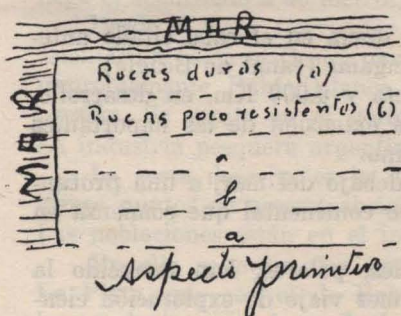 MAR
MAR
Rocas duras (a)
Rocas poco resistentes (b)
a
b
a
Aspecto primitivo